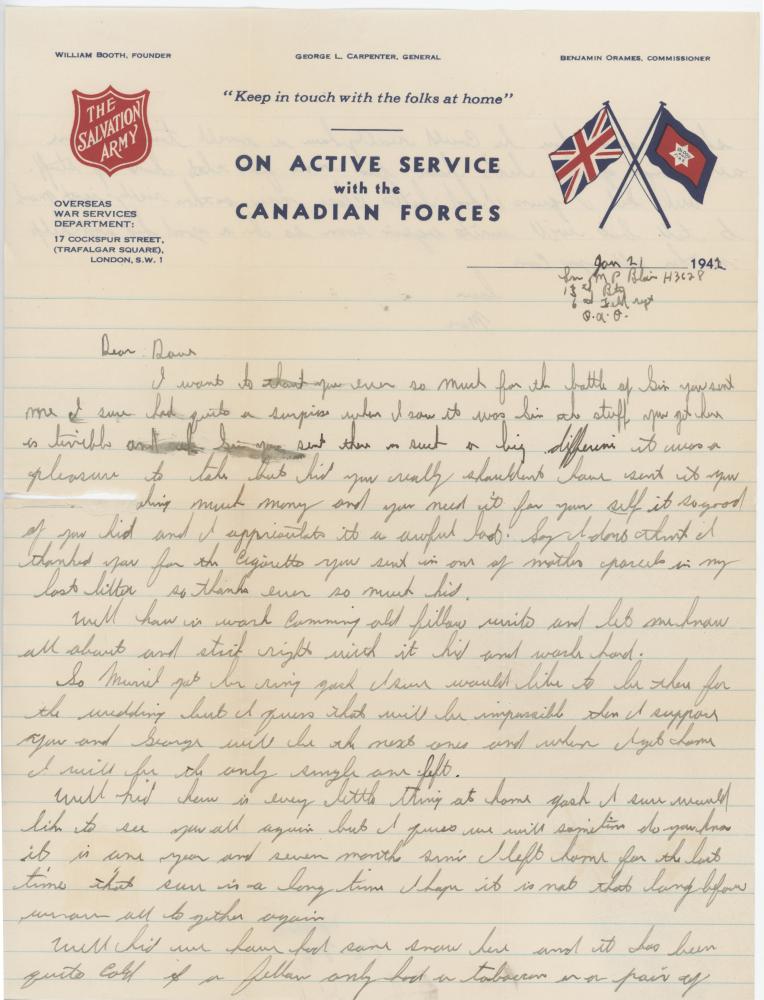 WILLIAM BOOTH, FOUNDER
GEORGE L. CARPENTER, GENERAL
BENJAMIN ORAMES, COMMISSIONER
"Keep in touch with the folks at home"
THE
SALVATION
ARMY
ON ACTIVE SERVICE
with the
CANADIAN FORCES
OVERSEAS
WAR SERVICES
DEPARTMENT:
17 COCKSPUR STREET,
(TRAFALGAR SQUARE),
LONDON, S.W. 1
Jan 21 1942
M P Blair H3628
13 Bty
6 Field rgt
C.A.O.
Dear Dave
I want to thank you ever so much for the bottle of Gin you sent
me I sure had quite a surprise when I saw it was Gin the stuff you get here
is terrible and sent there is such a big difference it was a
pleasure to take but kid you really shouldent have sent it you
much money and you need it for your self it so good
of you kid and I appriciate it a awful lot. Say I dont think I
thanked you for the Cigaretts you sent in one of mothers parcels in my
last letter so thanks ever so much kid.
Well how is work Comming old fellow write and let me know
all about and stick right with it kid and work hard.
So Muriel got her ring gosh I sure would like to be there for
the wedding but I guess that will be impossible then I suppose
you and George will be the next ones and when I get home
I will be the only single one left.
Well kid how is every little thing at home gosh I sure would
like to see you all again but I guess we will sometime do you know
it is one year and seven month since I left home for the last
time that sure is a long time I hope it is not that long before
we are all to gether again
Well kid we have had some snow here and it has been
quite Cold if a fellow only had a toboggan or a pair of